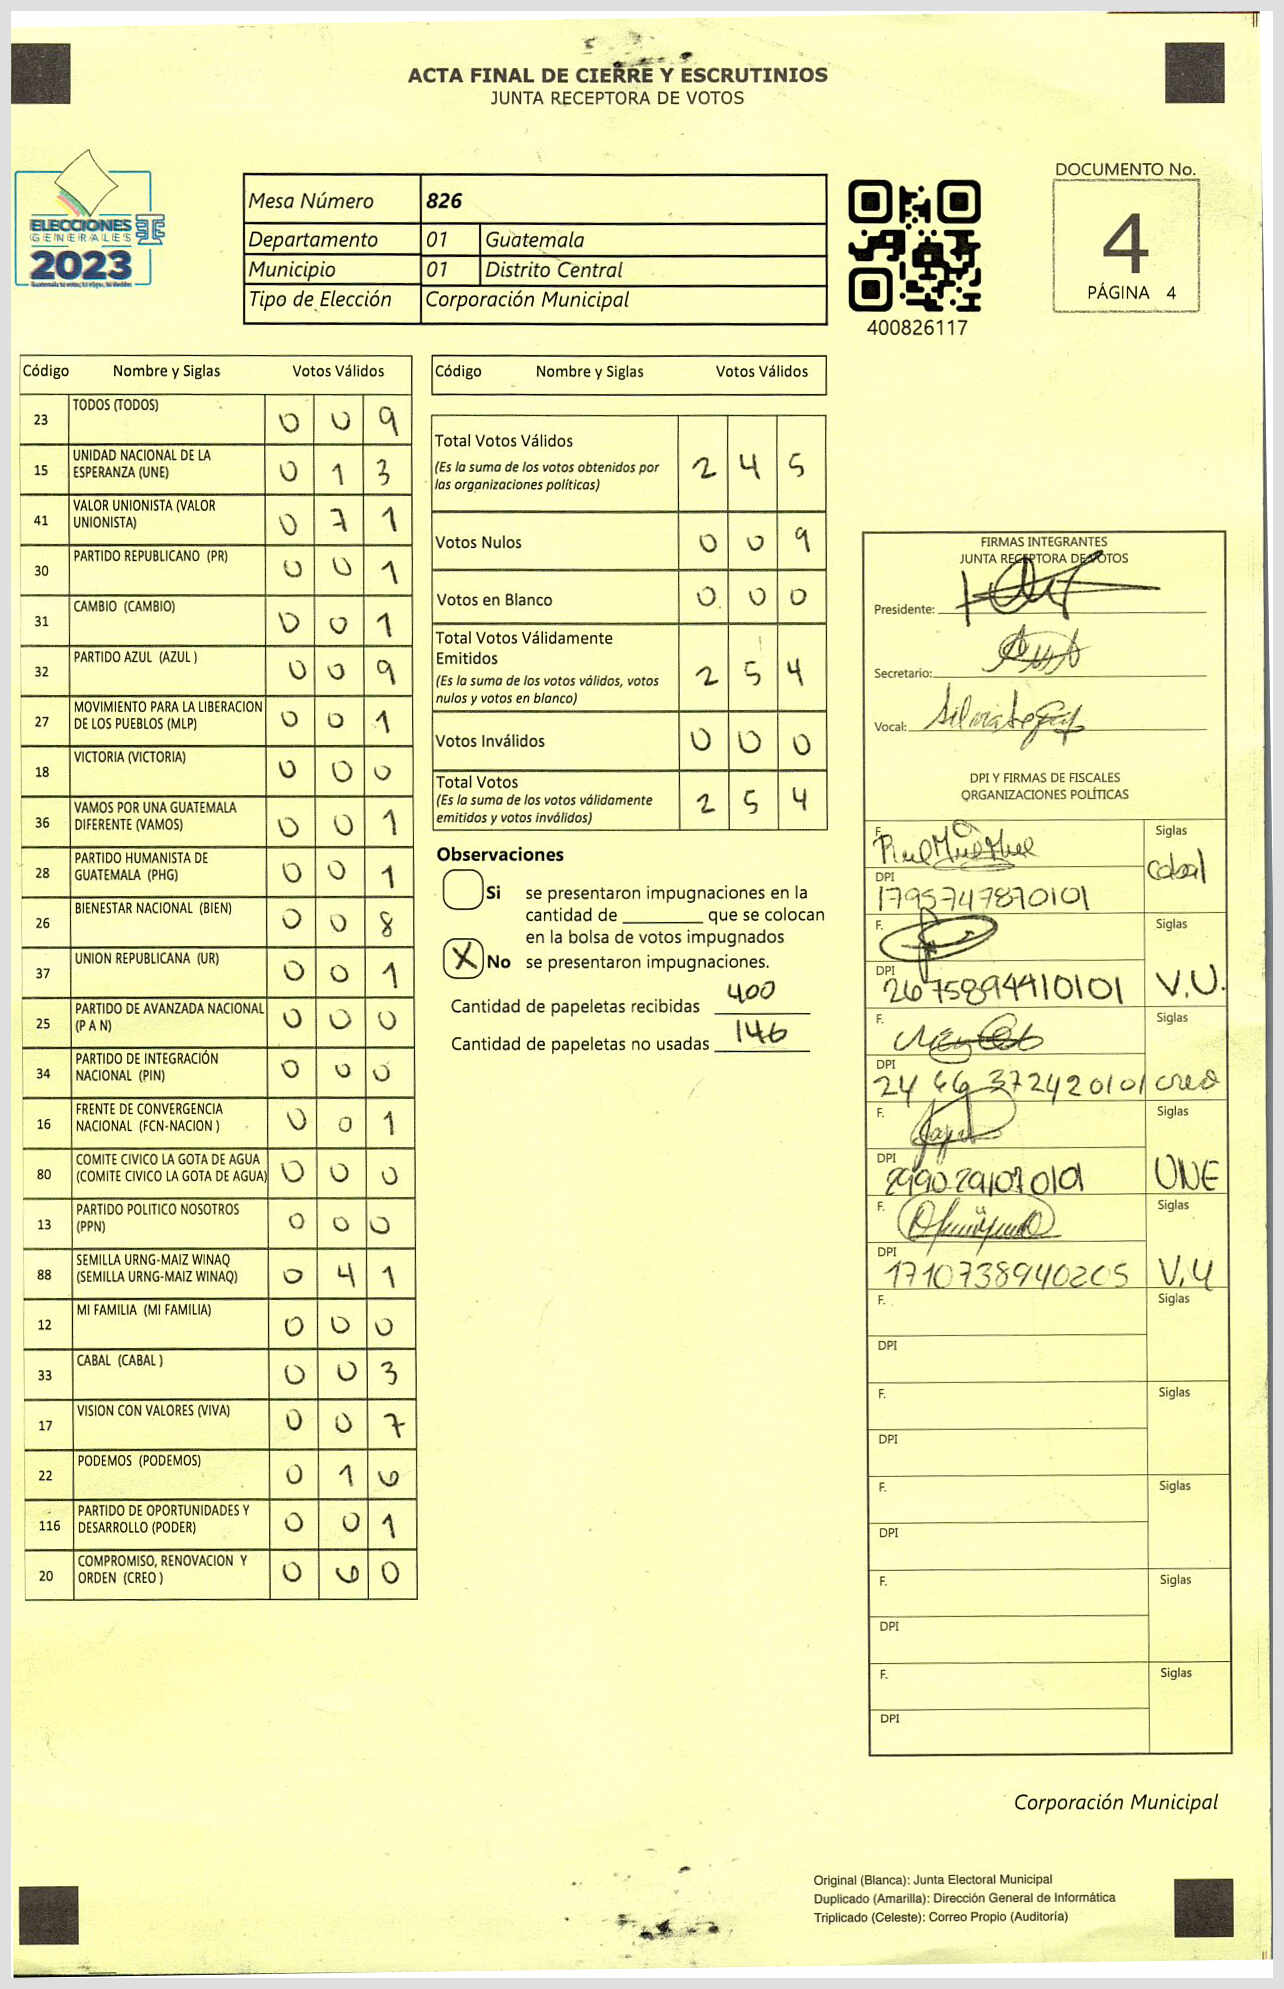 ACTA FINAL DE CIERRE Y ESCRUTINIOS
JUNTA RECEPTORA DE VOTOS
ELECCIONES
GENERALES
2023
Mesa Número 826
Departamento 01 Guatemala
Municipio 01 Distrito Central
Tipo de Elección Corporación Municipal
400826117
DOCUMENTO No.
4
PÁGINA 4
Código Nombre y Siglas Votos Válidos
23 TODOS (TODOS) 0 0 9
15 UNIDAD NACIONAL DE LA
ESPERANZA (UNE) 0 1 3
41 VALOR UNIONISTA (VALOR
UNIONISTA) 0 7 1
30 PARTIDO REPUBLICANO (PR) 0 0 1
31 CAMBIO (CAMBIO) 0 0 1
32 PARTIDO AZUL (AZUL ) 0 0 9
27 MOVIMIENTO PARA LA LIBERACION
DE LOS PUEBLOS (MLP) 0 0 1
18 VICTORIA (VICTORIA) 0 0 0
36 VAMOS POR UNA GUATEMALA
DIFERENTE (VAMOS) 0 0 1
28 PARTIDO HUMANISTA DE
GUATEMALA (PHG) 0 0 1
26 BIENESTAR NACIONAL (BIEN) 0 0 8
37 UNION REPUBLICANA (UR) 0 0 1
25 PARTIDO DE AVANZADA NACIONAL
(P A N) 0 0 0
34 PARTIDO DE INTEGRACIÓN
NACIONAL (PIN) 0 0 0
16 FRENTE DE CONVERGENCIA
NACIONAL (FCN-NACION ) 0 0 1
80 COMITE CIVICO LA GOTA DE AGUA
(COMITE CIVICO LA GOTA DE AGUA) 0 0 0
13 PARTIDO POLITICO NOSOTROS
(PPN) 0 0 0
88 SEMILLA URNG-MAIZ WINAQ
(SEMILLA URNG-MAIZ WINAQ) 0 4 1
12 MI FAMILIA (MI FAMILIA) 0 0 0
33 CABAL (CABAL ) 0 0 3
17 VISION CON VALORES (VIVA) 0 0 7
22 PODEMOS (PODEMOS) 0 1 6
116 PARTIDO DE OPORTUNIDADES Y
DESARROLLO (PODER) 0 0 1
20 COMPROMISO, RENOVACION Y
ORDEN (CREO ) 0 6 0
Código Nombre y Siglas Votos Válidos
Total Votos Válidos 2 4 5
(Es la suma de los votos obtenidos por
las organizaciones políticas)
Votos Nulos 0 0 9
Votos en Blanco 0 0 0
Total Votos Válidamente
Emitidos 2 5 4
(Es la suma de los votos válidos, votos
nulos y votos en blanco)
Votos Inválidos 0 0 0
Total Votos 2 5 4
(Es la suma de los votos válidamente
emitidos y votos inválidos)
Observaciones
Si se presentaron impugnaciones en la
cantidad de ________ que se colocan
en la bolsa de votos impugnados
X No se presentaron impugnaciones.
Cantidad de papeletas recibidas 400
Cantidad de papeletas no usadas 146
FIRMAS INTEGRANTES
JUNTA RECEPTORA DE VOTOS
Presidente:
Secretario:
Vocal:
DPI Y FIRMAS DE FISCALES
ORGANIZACIONES POLÍTICAS
F. Siglas
cabal
DPI
1795747870101
F. Siglas
DPI
2675894410101 V.U.
F. Siglas
DPI
24 66 37242 0101 creo
F. Siglas
DPI
UNE
F. Siglas
DPI
1710738940205 V.U
F. Siglas
DPI
F. Siglas
DPI
F. Siglas
DPI
F. Siglas
DPI
F. Siglas
DPI
Corporación Municipal
Original (Blanca): Junta Electoral Municipal
Duplicado (Amarilla): Dirección General de Informática
Triplicado (Celeste): Correo Propio (Auditoría)